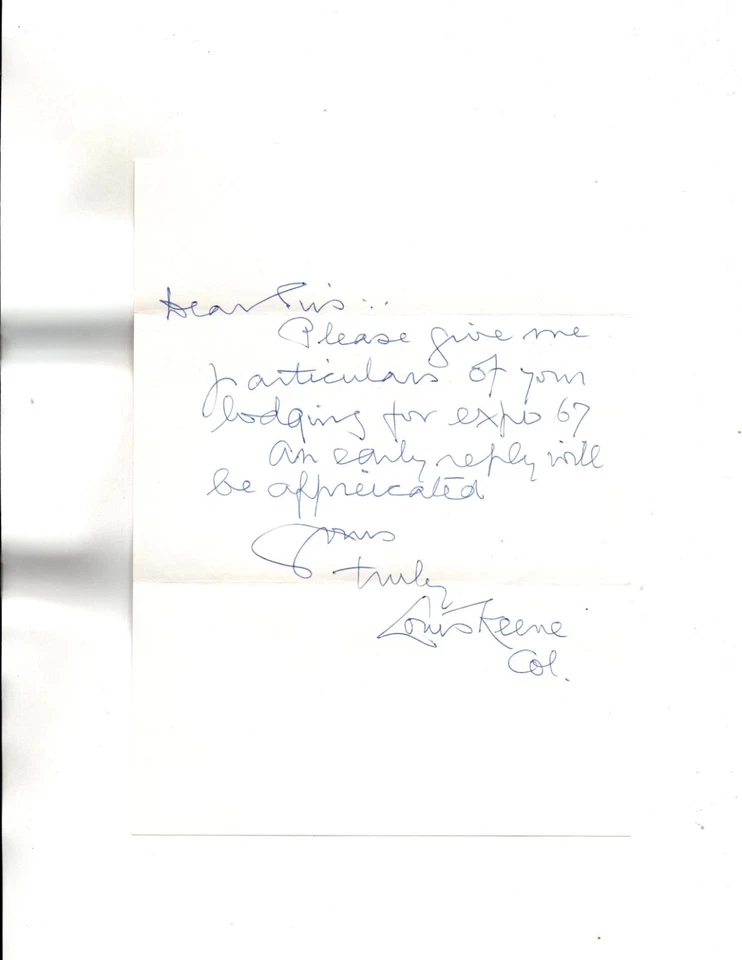 Dear Sirs...
Please give me
particulars of your
lodging for expo 67
An early reply will
be appreicated
yours
truly
Louis Keene
Col.